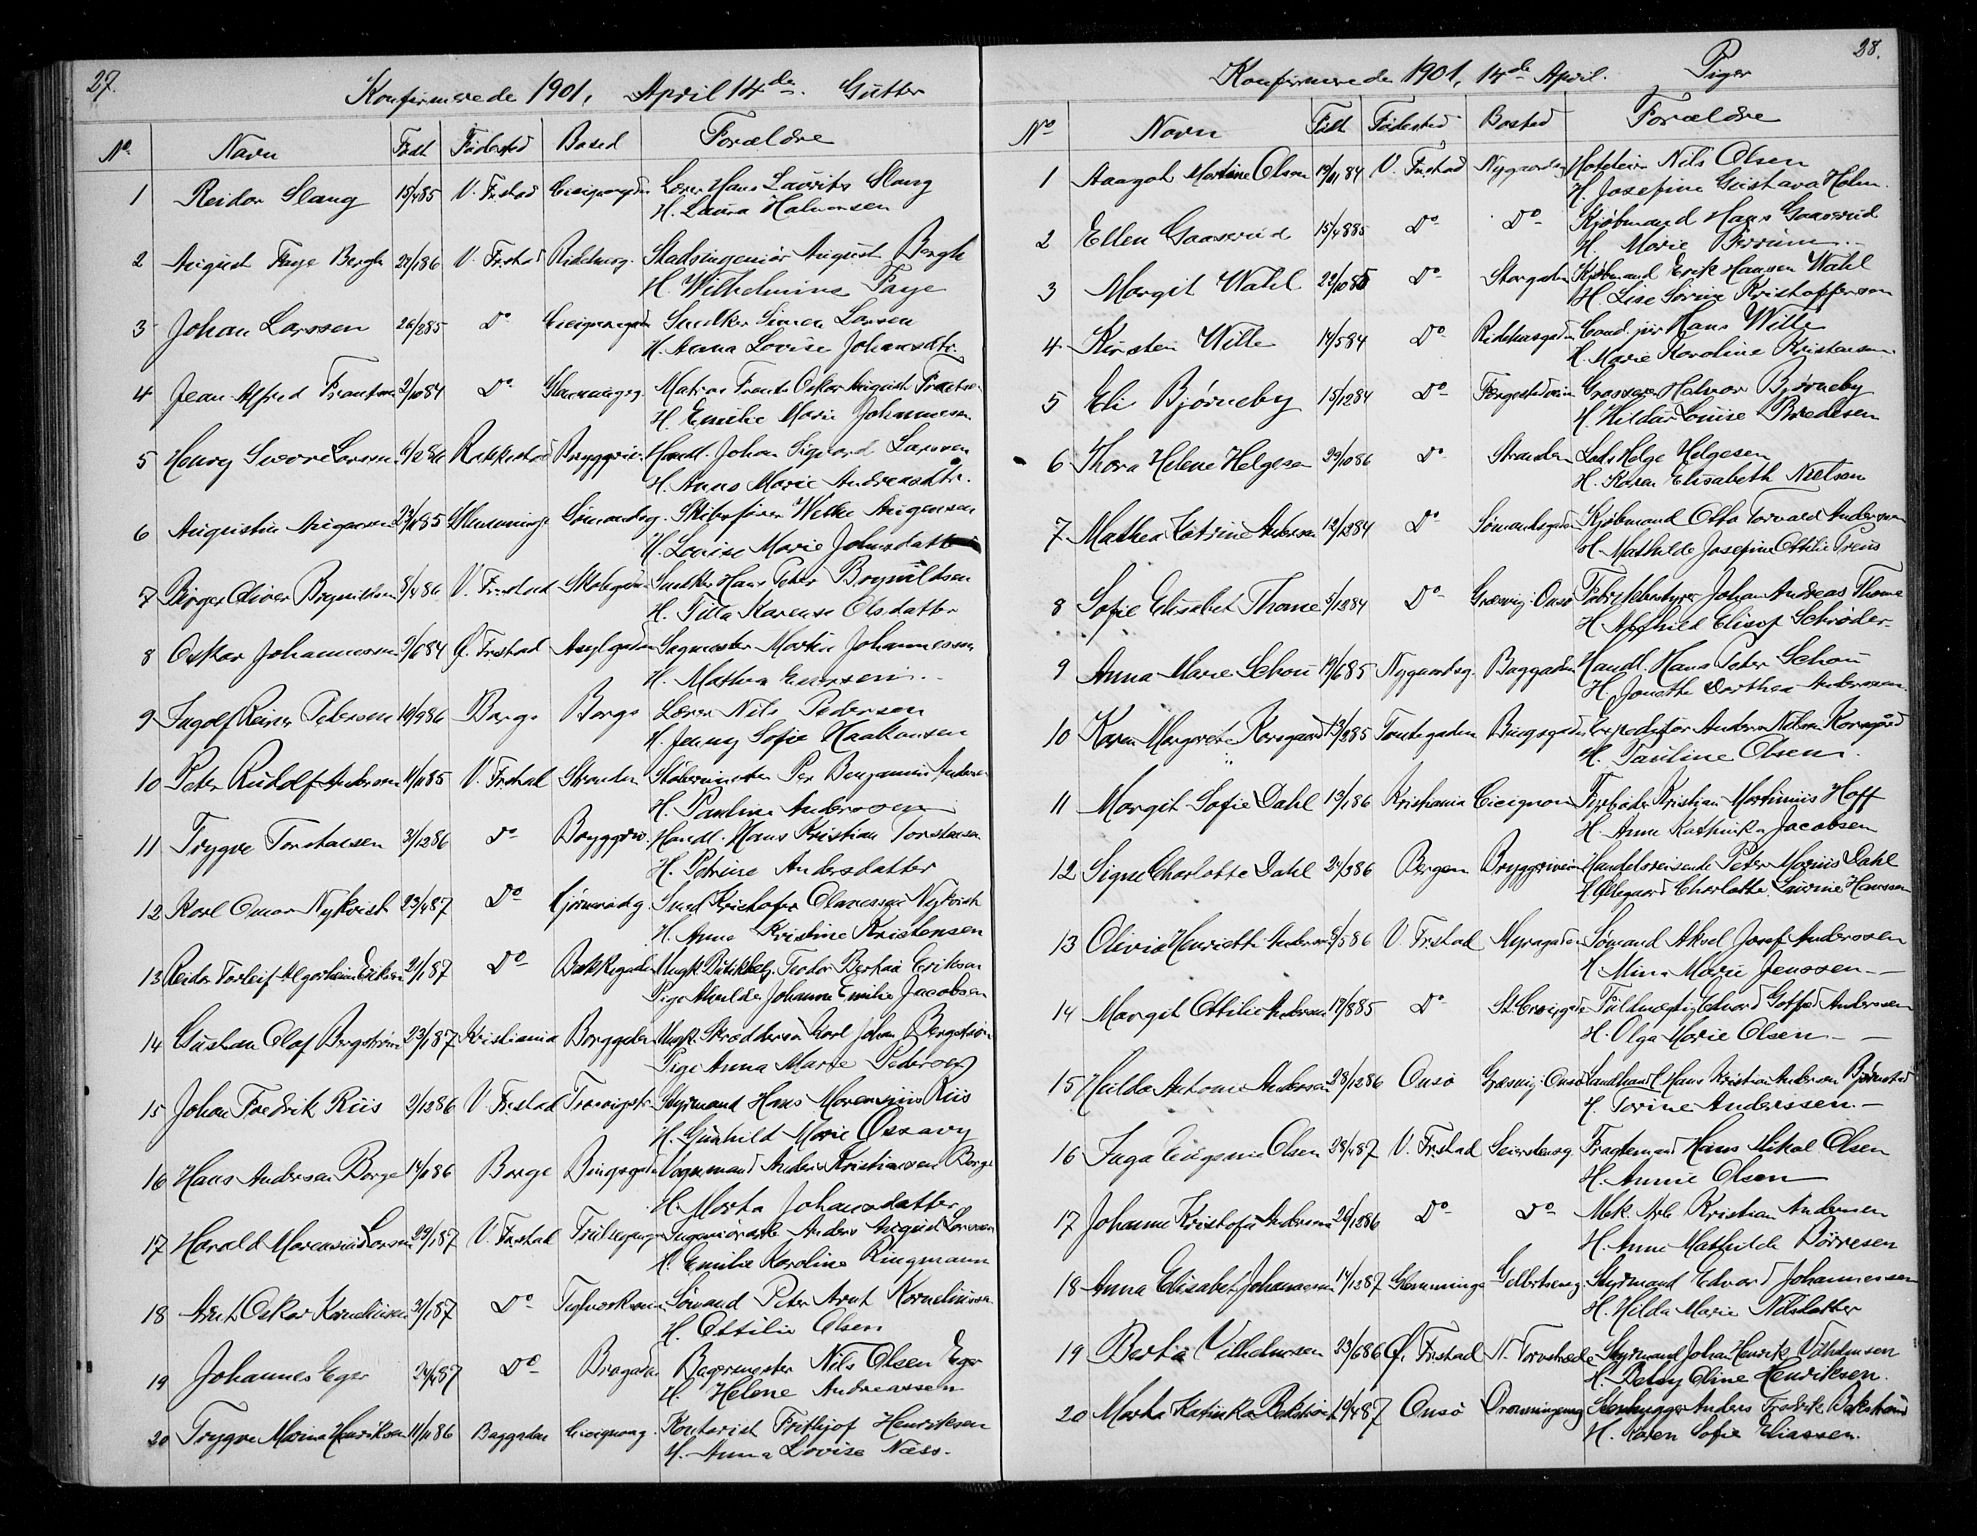 27.
Konfirmerede 1901, April 14de. Gutter
No. Navn Født Fødested Bosted Forældre
1 Reidar Slang 15/4 85 V. Frstad Lærer Hans Laurits Slang
H. Laura Halvorsen
2 August Faye Bergh 27/1 86 V. Frstad Ridehusg. Stadsingeniør August Bergh
H. Wilhelmine Faye
3 Johan Larssen 26/2 85 Do Snedker Simen Larsen
H. Anna Lovise Johansdtr.
4 Jean Alfred Frantsen 2/10 84 Do Matros Frants Oskar August Frantsen
H. Emilie Marie Johannesen
5 Henry Sverre Larsen Rakkestad Bryggeriv. Handl. Johan Sigvard Larssen
H. Anna Marie Andreasdtr.
6 Augustin Augensen Glemminge Sømandsg. Skibsfører Wilke Augensen
H. Lovise Marie Johnsdatter
7 Birger Oliver Brynildsen 8/4 86 V. Frstad Snedker Hans Peter Brynildsen
H. Tilla Karense Olsdatter
8 Oskar Johannessen 2/6 84 Ø. Frstad Asylgaden Sagmester Martin Johannessen
H. Mathea
9 Ingolf Reiner Pedersen 10/9 86 Borge Borge Lærer Nils Pedersen
H. Jenny Sofie Haakonsen
10 Peter Rudolf Andersen 11/11 85 V. Frstad Stranden Støbermester Per Benjamin Andersen
H. Pauline Anderssen
11 Trygve Torstensen 3/12 86 Do Bryggeriv. Handl. Hans Kristian Torstensen
H. Petrine Andersdatter
12 Karl Omar Nykvist 23/4 87 Do Smed Kristofer Olavessen Nykvist
H. Anna Kristine Kristensen
13 Reidar Torleif Algortheim Eriksen 21/1 87 Do Bakkegaden Ungk. Teodor Bertin Eriksen
Pige Alvilde Johanne Emilie Jacobsen
14 Gustav Olaf Bergstrøm 23/1 87 Kristiania Ungk. Skræddersv. Karl Johan Bergstrøm
Pige Anna Marie Pedersen
15 Johan Fredrik Riis 2/12 86 V. Frstad Styrmand Hans Marensius Riis
H. Gunhild Marie Ossavy
16 Hans Andersen Borge 14/1 86 Borge Vognmand Anders Kristiansen Borge
H. Marta Johansdatter
17 Harald Marensius Larsen 29/1 87 V. Frstad Ingeniørass. Anders August Larssen
H. Emilie Karoline Ringmann
18 Arnt Oskar Korneliussen 3/1 87 Do Teglverksveien Sømand Peter Arnt Korneliussen
H. Ottilie Olsen
19 Johannes Eger 24/4 87 Do Brogaden Bagermester Nils Olsen Eger
H. Helene Andreassen
20 Trygve Marius Henriksen 11/11 86 Baggaden Kontorist Frithjof Henriksen
H. Anna Lovise Næss.
28.
Konfirmerede 1901, 14de April. Piger
No Navn Født Fødested Bosted Forældre
1 Aagot Martine Olsen 19/11 84 V. Frstad Nygaardsg. Nils Olsen
H. Josefine Gustava Holm.
2 Ellen Gaaserud 15/4 85 Do Do Kjøbmand Hans Gaaserud
H. Marie
3 Margit Wahl 22/10 85 Do Storgaden Kjøbmand Erik Hansen Wahl
H. Lise Sørine Kristoffersen
4 Kirsten Wille 14/5 84 Do Ridehusgaden Cand. jur Hans Wille
H. Marie Karoline Kristensen
5 Eli Bjørneby 15/12 84 Do Færgestedveien Grosserer Halvor Bjørneby
H. Hilda Louise Bredesen
6 Thora Helene Helgesen 29/10 86 Do Stranden Lods Helge Helgesen
H. Karen Elisabeth Nielsen
7 Mathea Katrine Andersen 12/12 84 Do Sømandsgaden Kjøbmand Otto Torvald Anderssen
H. Mathilde Josefine Ottilie Preus
8 Sofie Elisabet Thome 5/12 84 Do Græsvig. Onsø Fabrikbestyrer Johan Andreas Thome
H. Schrøder
9 Anna Marie Schou 19/6 85 Nygaardsg. Baggaden Handl. Hans Peter Schou
H. Jonette Dorthea Anderssen
10 Karen Margrete Korsgaard 13/2 85 Tomtegaden Expeditør Anders Nilsen Korsgård
H. Pauline Olsen.
11 Margit Sofie Dahl 13/1 86 Kristiania Cicignon Fyrbøder Kristian Martinius Hoff
H. Anne Kathinka Jacobsen
12 Signe Charlotte Dahl Bergen Bryggeriveien Handelsreisende Peter Marius Dahl
H. Charlotte Laurine Hanssen
13 Olivia Henriette Andersen 8/5 86 V. Frstad Myragaden Sømand Aksel Josef Anderssen
H. Mina Marie Jenssen
14 Margit Ottilie Andersen 17/8 85 Do Fuldmægtig Edvard Gotfred Anderssen
H. Olga Marie Olsen
15 Hulda Antonie Andersen 28/12 86 Onsø Græsvig. Onsø Landhandl. Hans Kristian Andersen Bjørnstad
H. Torine Anderssen.
16 Inga Eugenie Olsen 28/4 87 V. Frstad Seierstensg. Fragtemand Hans Mikal Olsen
H. Annie Olsen
17 Johanne Kristofa Andersen 26/12 86 Do Do Mek. Arb. Kristian Andersen
H. Anne Mathilde Børresen
18 Anna Elisabet Johannessen 14/12 87 Glemminge Styrmand Edvard Johannessen
H. Hilda Marie Nilsdatter
19 Berta Vilhelmsen 23/6 86 Ø. Frstad N. Torvstræde Styrmand Johan Henrik Vilhelmsen
H. Betsy Eline Henriksen.
20 Marta Katinka Bakstrøm 19/4 87 Onsø Dronningensg Stenhugger Anders Fredrik Bakstrøm
H. Karen Sofie Eliassen.